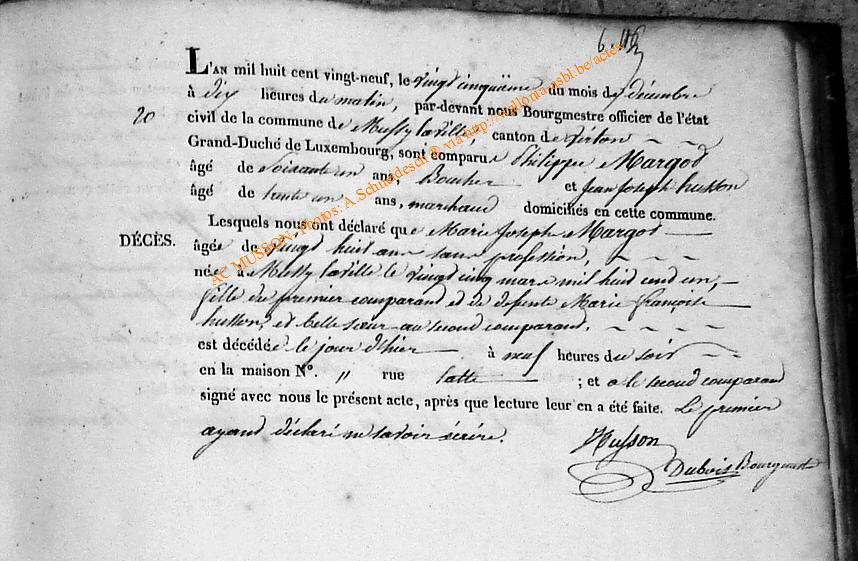 20
DÉCÈS.
L'AN mil huit cent vingt-neuf, le vingt cinquième du mois de décembre
à dix heures du matin, par-devant nous Bourgmestre officier de l'état
civil de la commune de Mussy laville, canton de virton
Grand-Duché de Luxembourg, sont comparus Philippe Margot
âgé de Soixante un ans, Boucher et Jean Joseph husson
âgé de trente un ans, marchand domiciliés en cette commune.
Lesquels nous ont déclaré que Marie Joseph Margot
âgée de vingt huit ans sans profession,
née à Mussy laville le vingt cinq mars mil huit cent un,
fille du premier comparand et de defunte Marie françoise
husson, et belle sœur au second comparand,
est décédée le jour d'hier à neuf heures du soir
en la maison N°. " rue latte ; et a le second comparand
signé avec nous le présent acte, après que lecture leur en a été faite. Le premier
ayand déclaré ne savoir écrire.
Husson
Dubois Bourgmest
AC MUSSON - Photos: A.Schnaidesch © via http://wallonia-asbl.be/actes